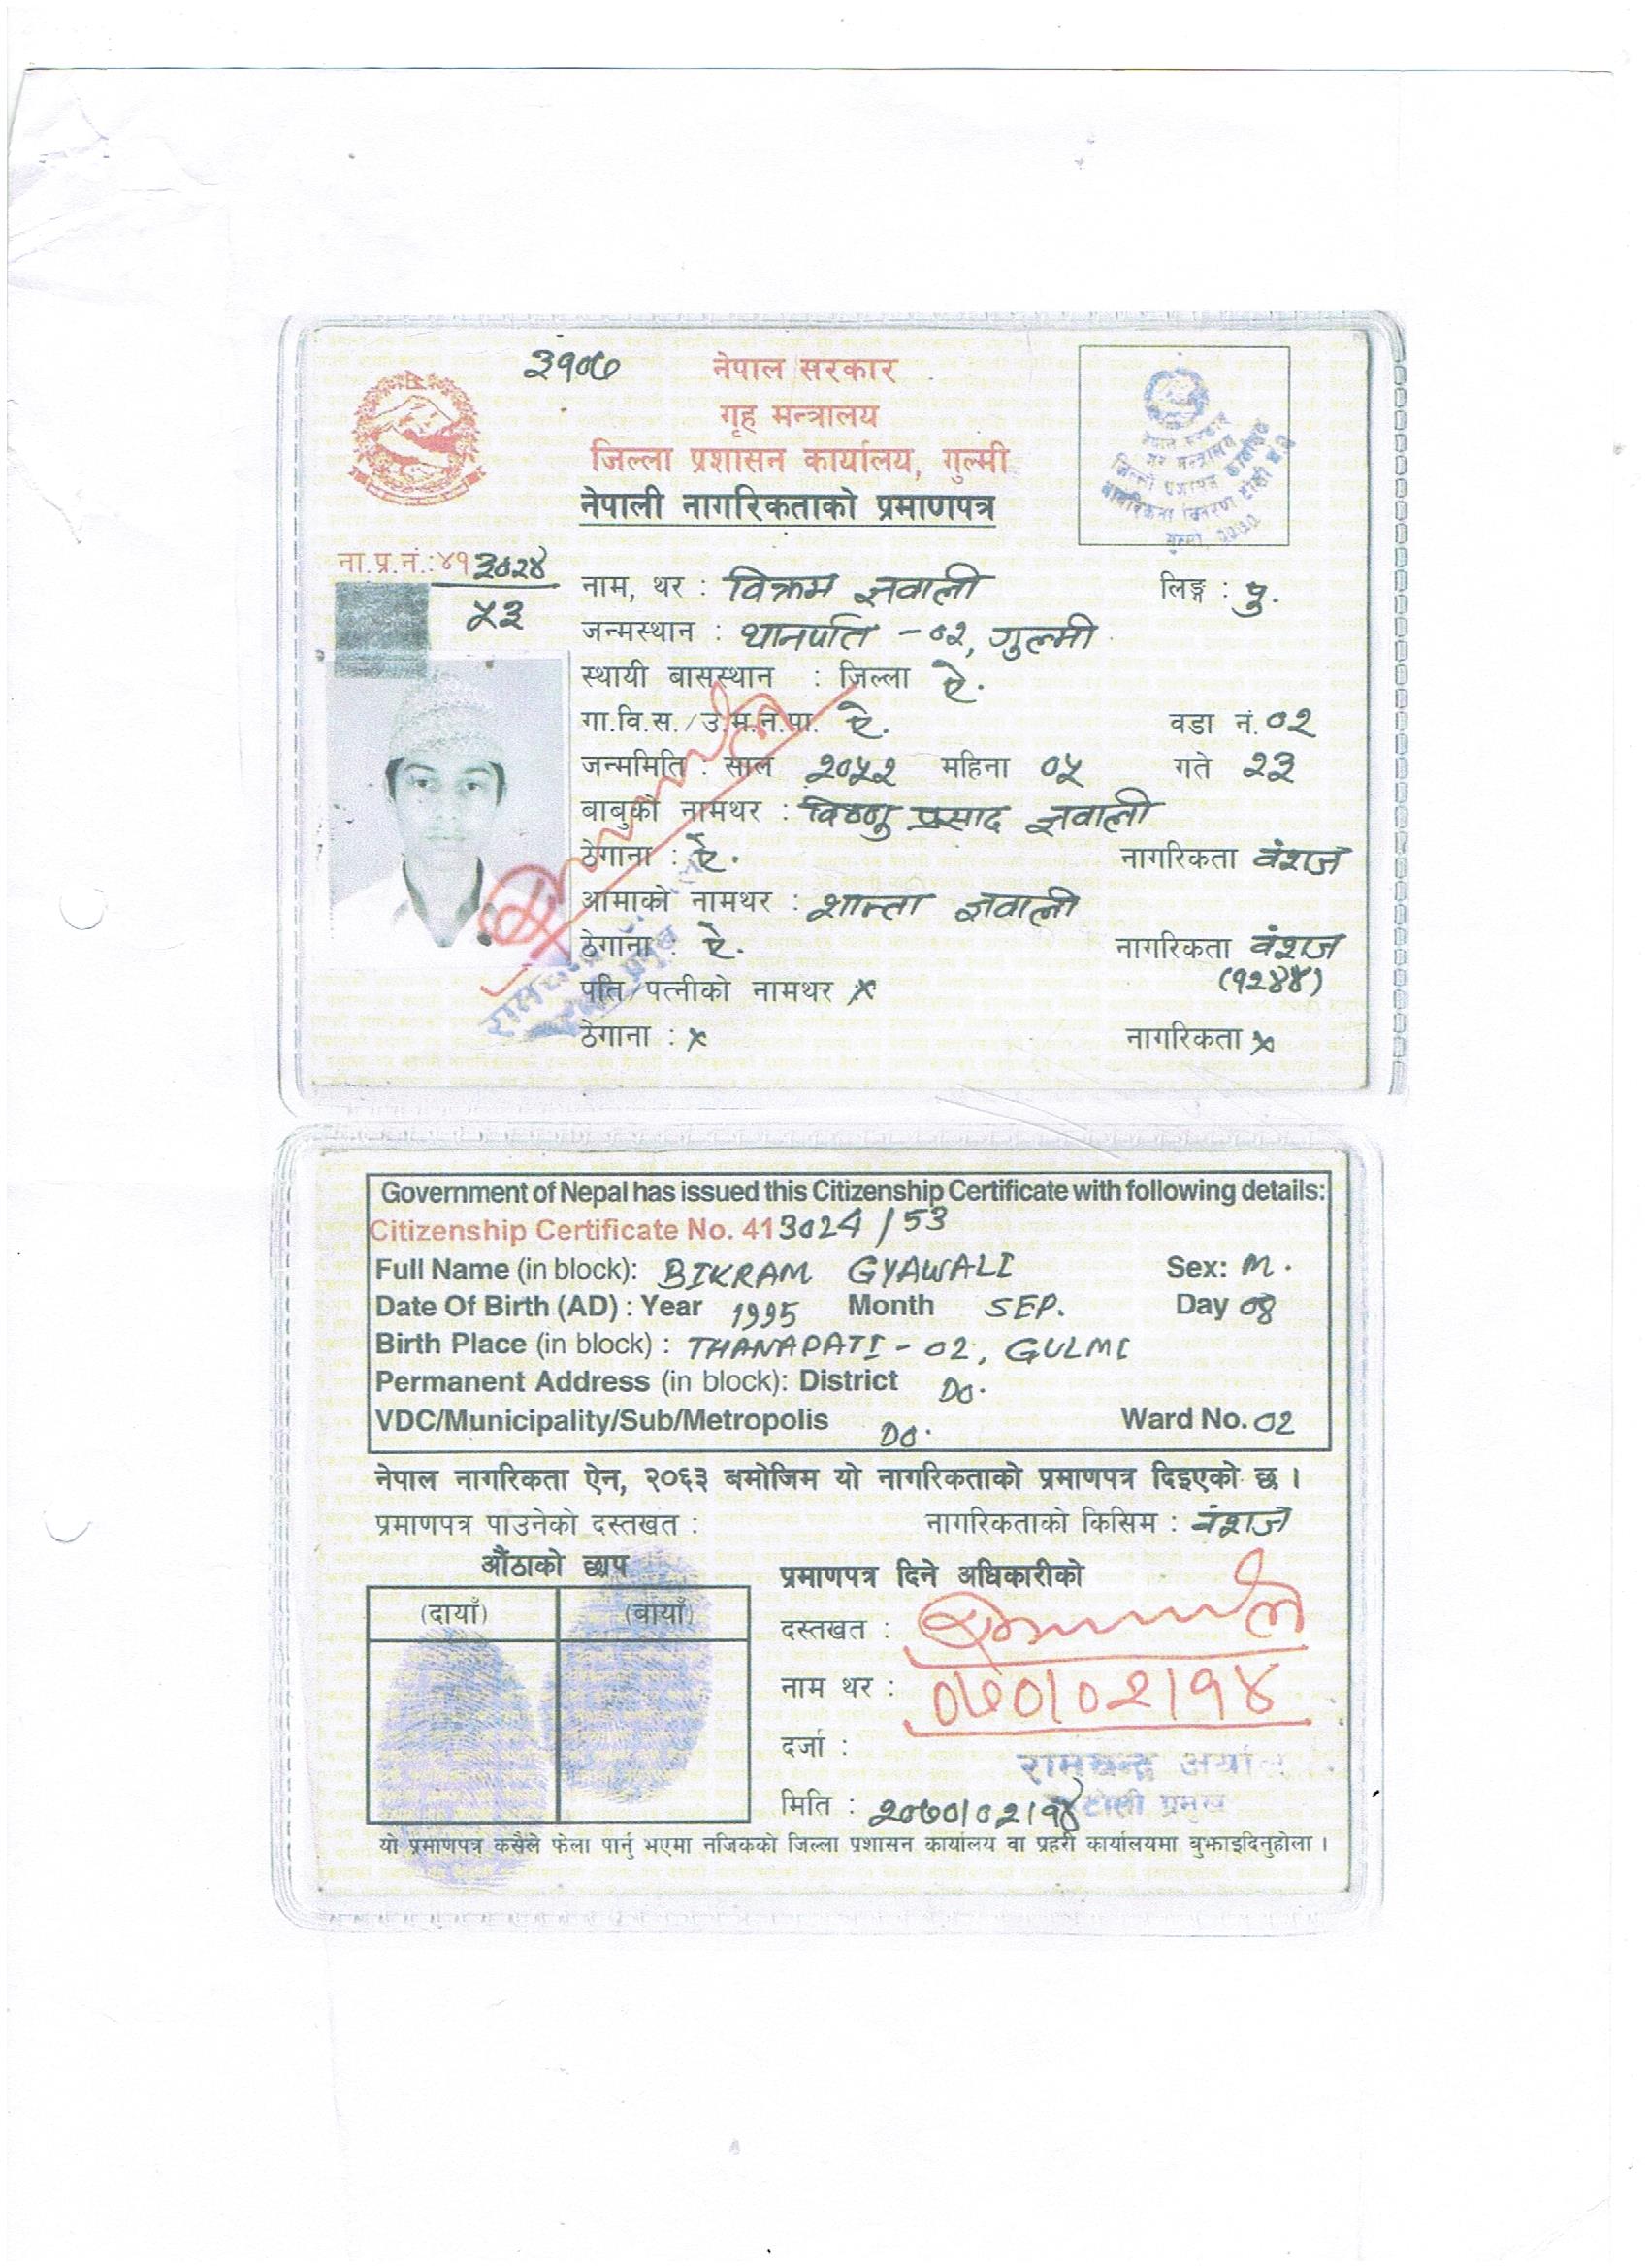 ३१०७
नेपाल सरकार
गृह मन्त्रालय
जिल्ला प्रशासन कार्यालय, गुल्मी
नेपाली नागरिकताको प्रमाणपत्र
नेपाल सरकार
गृह मन्त्रालय
जिल्ला प्रशासन कार्यालय
नागरिकता वितरण टोली
ना.प्र.नं.:४१३०२४
५३
नाम, थर : विक्रम ज्ञवाली लिङ्ग : पु.
जन्मस्थान : थानपति -०२, गुल्मी
स्थायी बासस्थान : जिल्ला ऐ.
गा.वि.स./उ.म.न.पा. ऐ. वडा नं. ०२
जन्ममिति : साल २०५२ महिना ०५ गते २३
बाबुको नामथर : विष्णु प्रसाद ज्ञवाली
ठेगाना : ऐ. नागरिकता वंशज
आमाको नामथर : शान्ता ज्ञवाली
ठेगाना : ऐ. नागरिकता वंशज
(१२४४)
पति/पत्नीको नामथर x
ठेगाना : x नागरिकता x
Government of Nepal has issued this Citizenship Certificate with following details:
Citizenship Certificate No. 413024/53
Full Name (in block): BIKRAM GYAWALI Sex: M.
Date Of Birth (AD) : Year 1995 Month SEP. Day 08
Birth Place (in block) : THANAPATI - 02, GULMI
Permanent Address (in block): District DO.
VDC/Municipality/Sub/Metropolis DO. Ward No. 02
नेपाल नागरिकता ऐन, २०६३ बमोजिम यो नागरिकताको प्रमाणपत्र दिइएको छ ।
प्रमाणपत्र पाउनेको दस्तखत : नागरिकताको किसिम : वंशज
औंठाको छाप
(दायाँ) (बायाँ)
प्रमाणपत्र दिने अधिकारीको
दस्तखत :
नाम थर : ०७०।०२।१४
दर्जा : रामचन्द्र अर्याल
टोली प्रमुख
मिति : २०७०।०२।१४
यो प्रमाणपत्र कसैले फेला पार्नु भएमा नजिकको जिल्ला प्रशासन कार्यालय वा प्रहरी कार्यालयमा बुझाइदिनुहोला ।